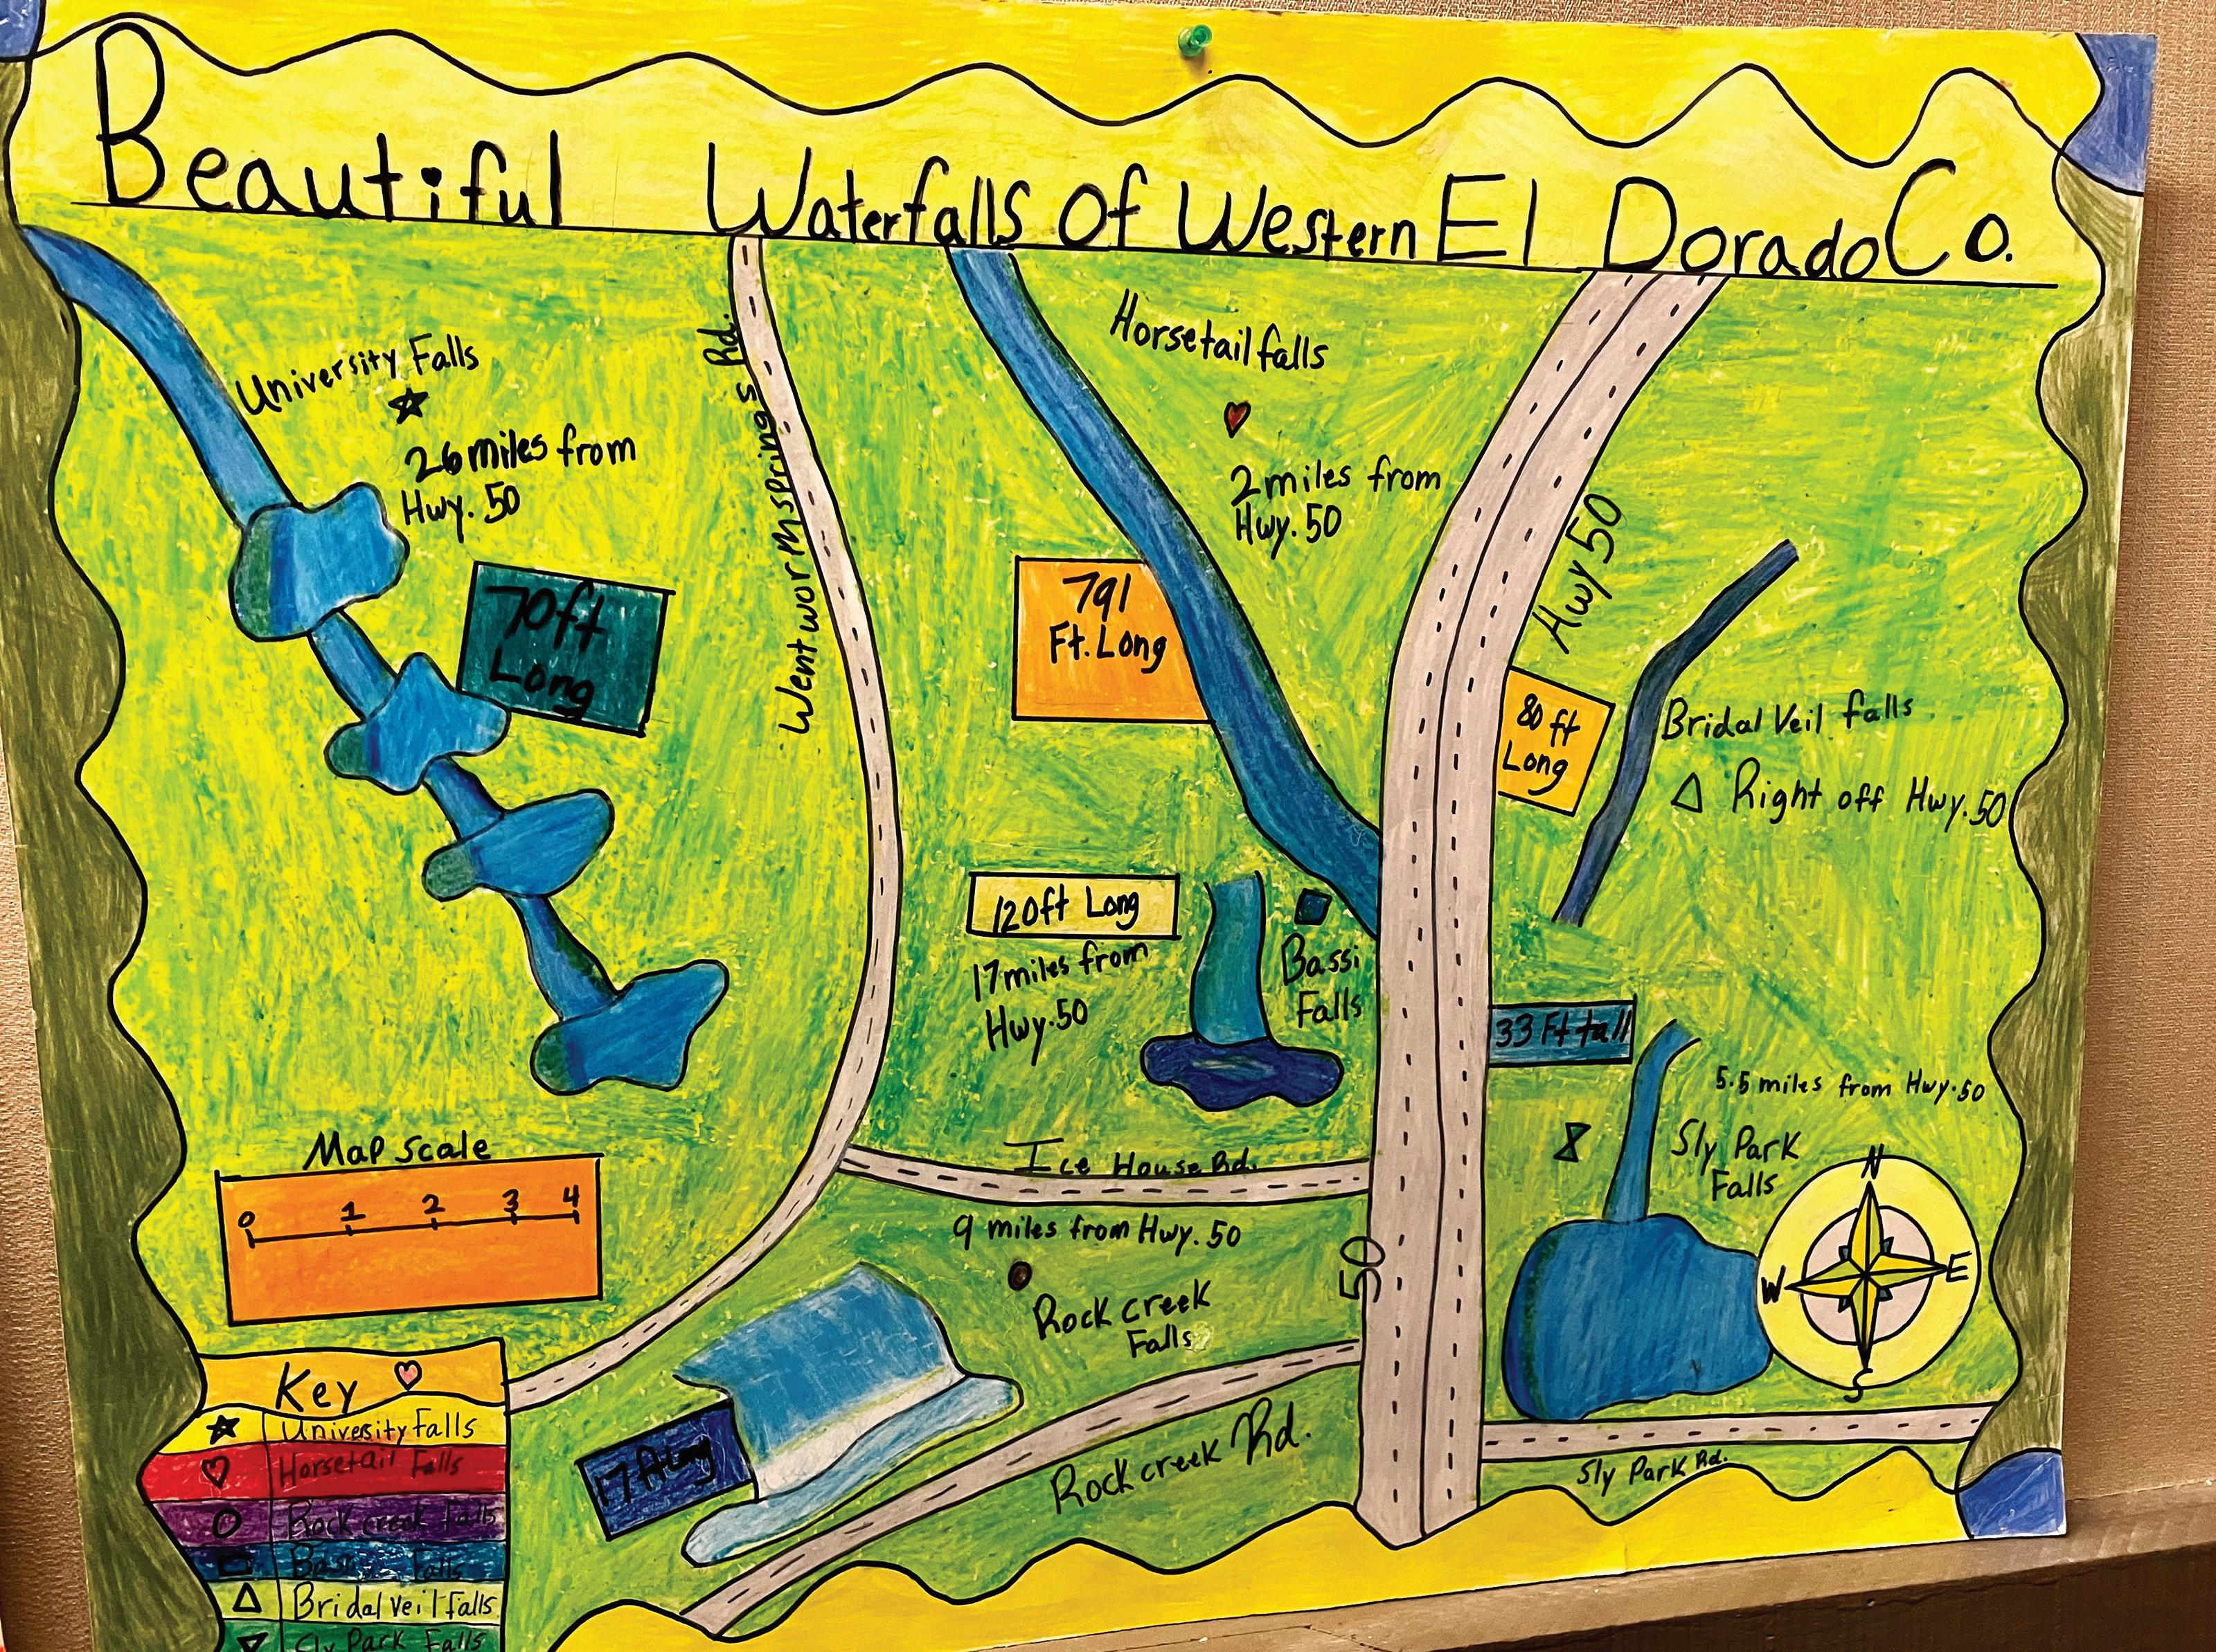 Beautiful Waterfalls Of Western El Dorado Co.
University Falls
26 miles from
Hwy. 50
70ft
Long
Wentwormsprings Rd.
Horsetail falls
2 miles from
Hwy. 50
791
Ft. Long
Hwy 50
80 ft
Long
Bridal Veil falls
Right off Hwy. 50
120ft Long
17 miles from
Hwy. 50
Bassi
Falls
33 Ft tall
5.5 miles from Hwy. 50
Sly Park
Falls
N
W
E
S
Map scale
0 1 2 3 4
Ice House Rd.
9 miles from Hwy. 50
Rock creek
Falls
50
17 ft Long
Rock creek Rd.
Sly Park Rd.
Key
Univesity falls
Horsetail Falls
Rock creek falls
Bassi Falls
Bridal veil falls
Sly Park Falls